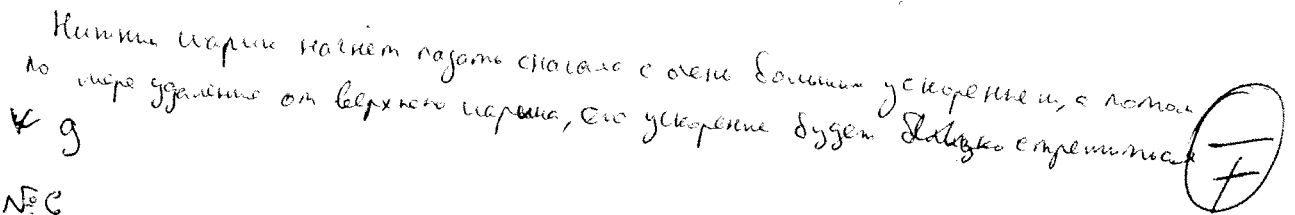 Нижний шарик начнёт падать сначала с очень большим ускорением, а потом
по мере удаления от верхнего шарика, его ускорение будет стремиться
к g
№6